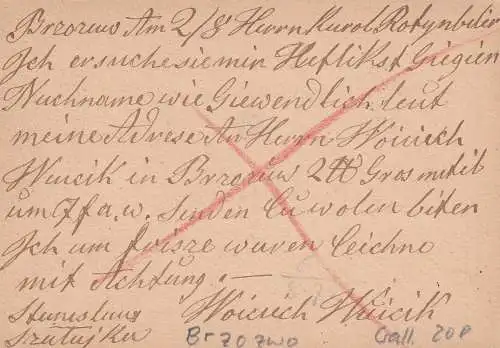 Brzozuw Am 2/8 Herrn Karol Rotynbilir
Ich ersuche sie min Heflikst Gegien
Nuchname wie Giewendlich leut
meine Adrese An Herrn Woiciech
Wuicik in Brzozuw 2 ℔ Gros
um 7 f a. w. Senden Cu wolen biten
Ich um frisze waren Ceichne
mit Achtung. —
Woiciech Wuicik
Stuneslaus
Szutujku
Brzozwo Gall. 20P